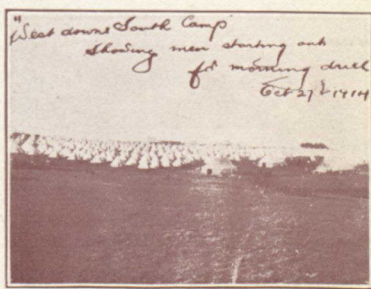 "West downs South Camp"
Showing men starting out
for morning drill
Oct 27th 1914